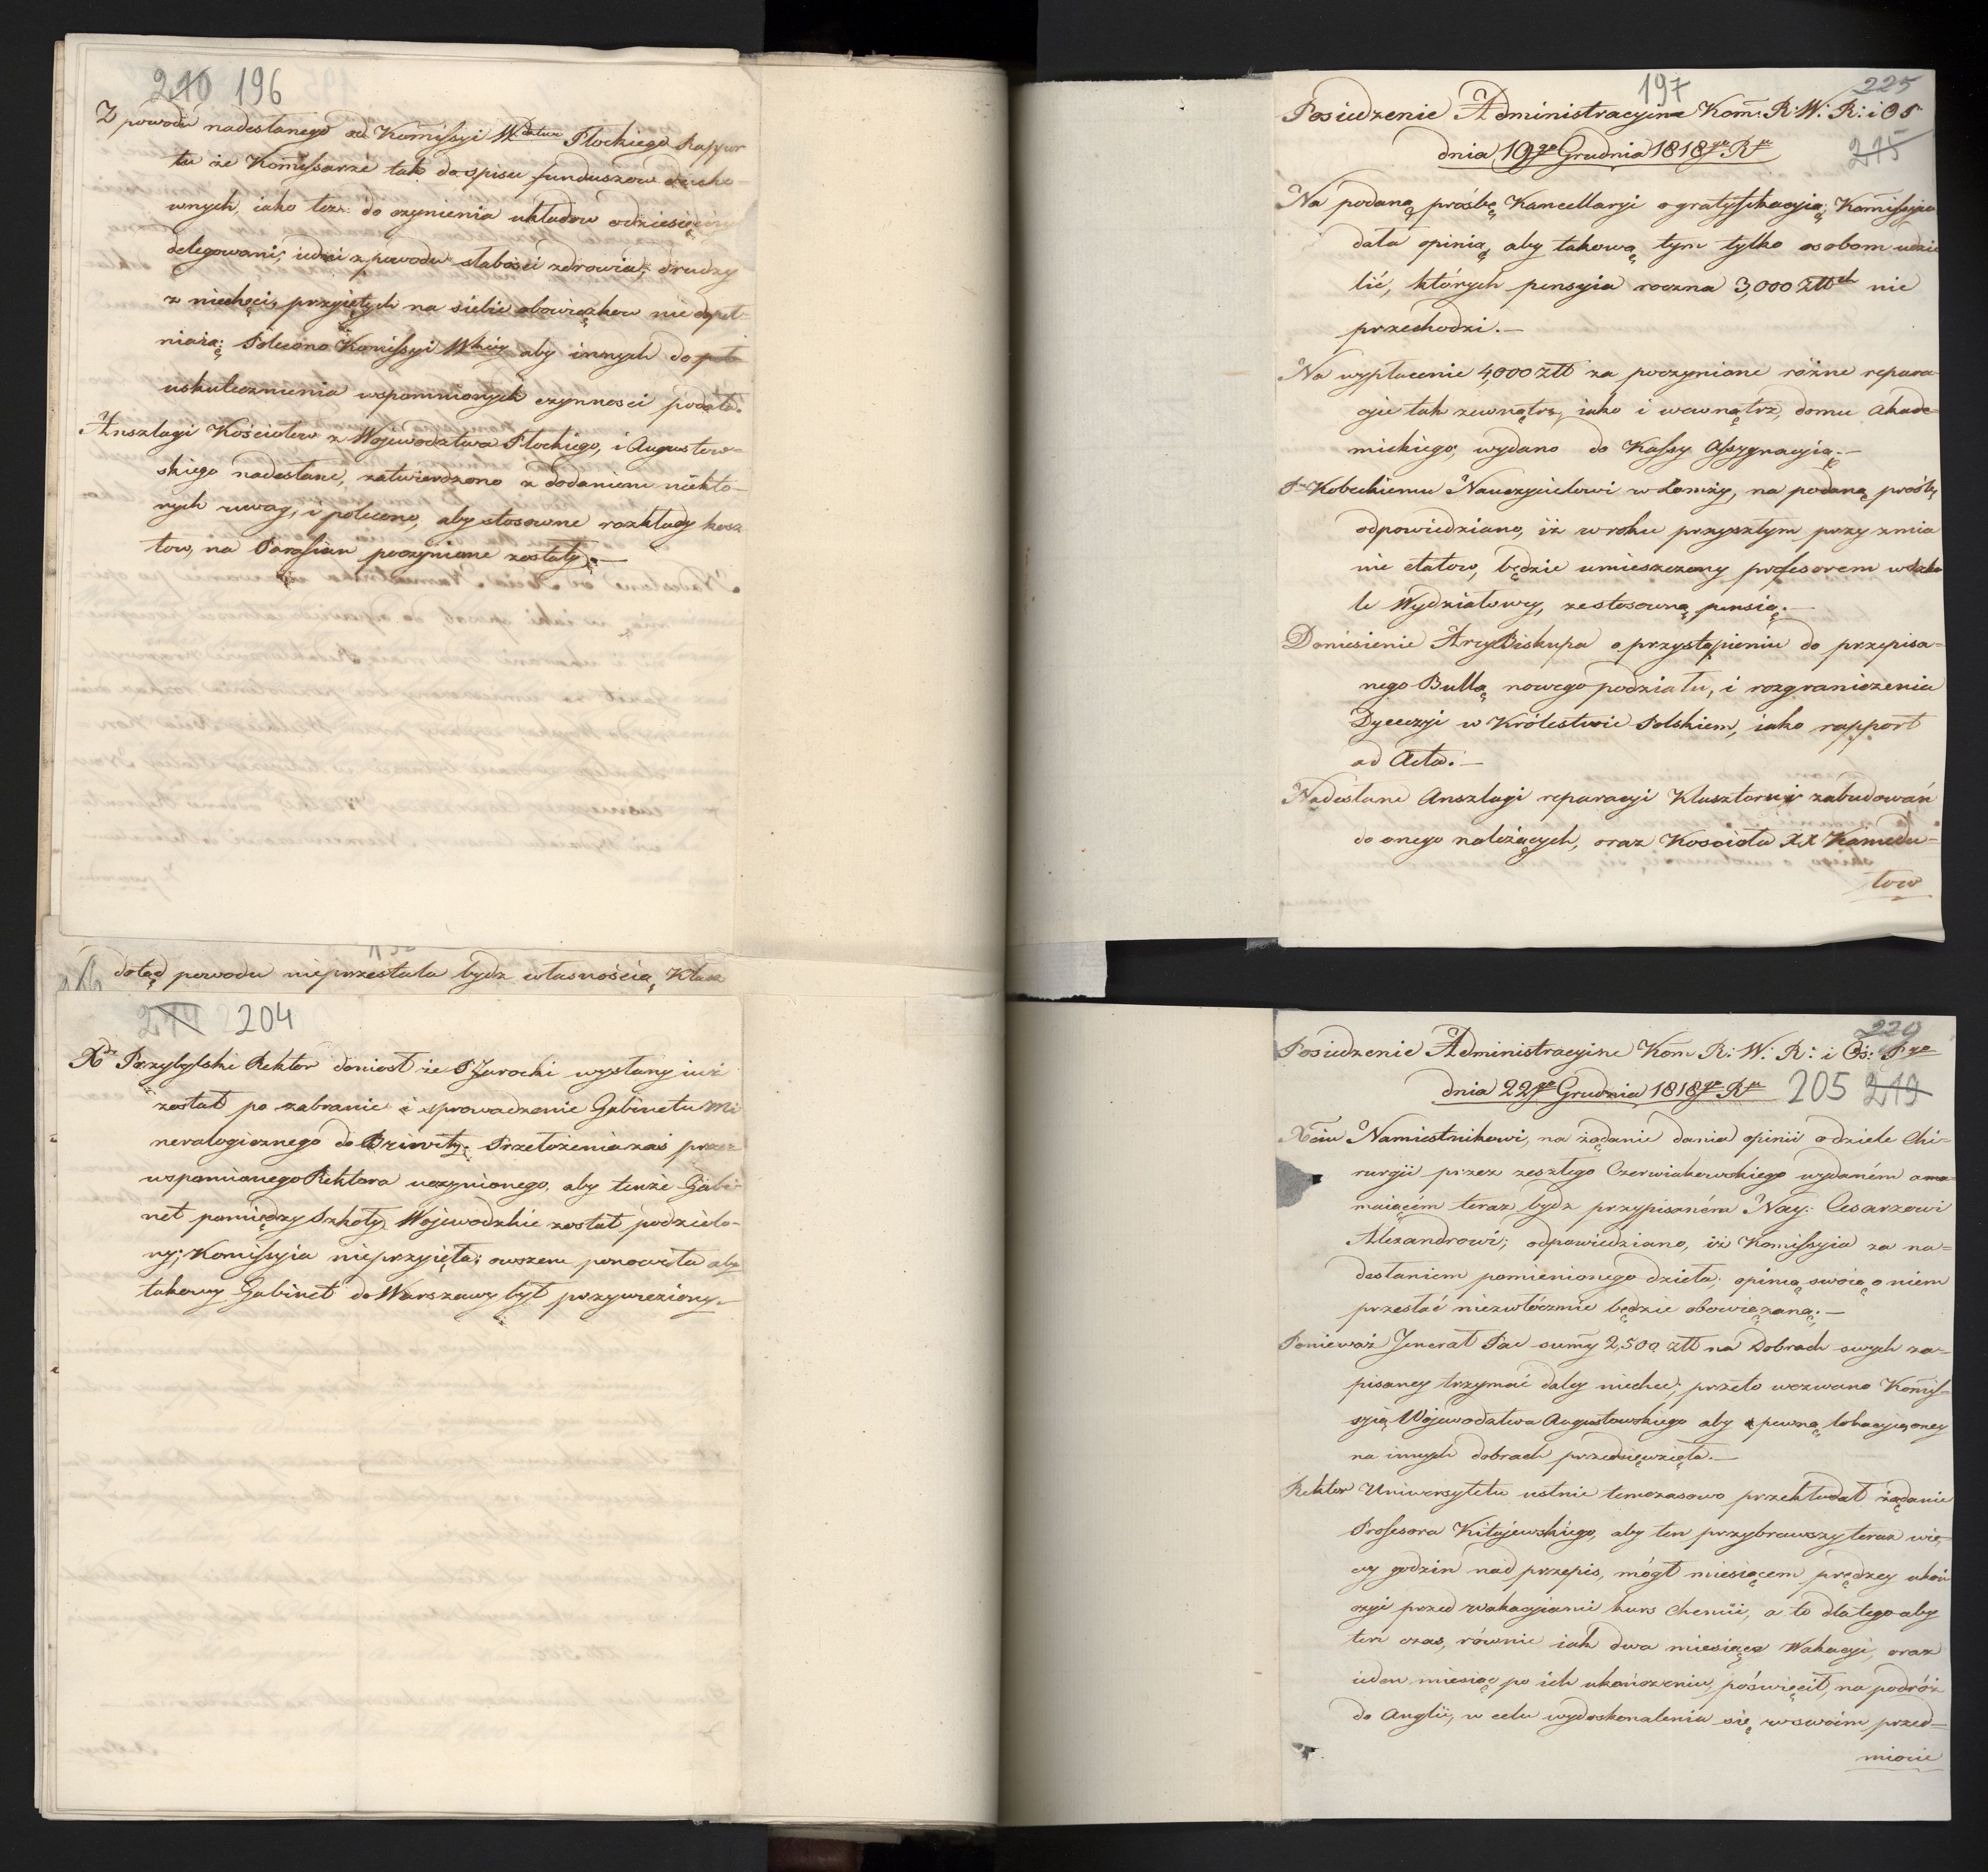 210 196
Z powodu nadesłanego od Kommissyi Wdztwa Płockiego Rappor
tu że Kommissarze tak do spisu funduszow ducho-
wnych, iako też do czynienia układow o dziesięciny
delegowani, iedni z powodu słabości zdrowia, drudzy
z niechęci, przyiętych na siebie obowiązkow nie dopeł-
niaią; Polecono Komissyi Wkiey aby innych do
uskutecznienia wspomnionych czynnosci podała.
Anszlagi Kościołow z Województwa Płockiego, i Augustow-
skiego nadesłane, zatwierdzono z dodaniem niekto-
rych uwag, i polecono, aby stosowne rozkłady kosz
tow, na Parafian poczynione zostały.—
dotąd powodu nieprzestała bydz własnością Klasz
214 204
Xdz Przybylski Rektor doniosł że P Jarocki wysłany iuż
został po zabranie i sprowadzenie Gabinetu Mi
neralogicznego do Brzewitz. Przełożenia zaś przez
wspomnionego Rektora uczynionego, aby tenże Gabi-
net pomiędzy Szkoły Wojewodzkie został podzielo-
ny; Komissyia nieprzyięła; owszem ponowiła aby
takowy Gabinet do Warszawy był przywieziony.—
197 225
Posiedzenie Administracyine Kom: R: W: R: i OS
dnia 19go Grudnia 1818go Rku 215
Na podaną prośbę Kancellaryi o gratyfikacyią; Komissyia
dała opinią, aby takową tym tylko osobom udzie
lić, których pensyia roczna 3,000 Złłch nie
przechodzi.—
Na wypłacenie 4,000 Złł za poczynione różne repara-
cyie tak zewnątrz, iako i wewnątrz, domu Akade-
mickiego, wydano do Kassy Assygnacyią.—
Pu Kobeckiemu Nauczycielowi w Łomży, na podaną prośbę
odpowiedziano, iż w roku przyszłym przy zmia
nie etatow, będzie umieszczony profesorem w szko
le Wydziałowey, ze stosowną pensią.—
Doniesienie ArcyBiskupa o przystąpieniu do przepisa-
nego Bullą nowego podziału, i rozgraniczenia
Dyecezyi w Królestwie Polskiem, iako rapport
ad Acta.—
Nadesłane Anszlagi reparacyi Klasztoru i zabudowań
do onego należących, oraz Kosciola XX Kamedu-
łow
229
Posiedzenie Administracyine Kom R: W: R: i Oś: Pgo
dnia 22go Grudnia 1818go Rku 205 219
Xciu Namiestnikowi, na żądanie dania opinii o dziele Chi-
rurgii przez zeszłego Czerwiakowskiego wydaném a ma-
maiącém teraz bydz przypisaném Nay: Cesarzowi
Alexandrowi; odpowiedziano, iż Komissyia za na-
desłaniem pomienionego dzieła, opinią swoią o niem
przesłać niezwłócznie będzie obowiązaną.—
Ponieważ Jenerał Pac summy 2,500 złł na Dobrach swych za-
pisaney trzymać daley niechce; przeto wezwano Komis-
syią Województwa Augustowskiego aby pewną lokacyią oney
na innych dobrach przedsięwzięła.—
Rektor Uniwersytetu ustnie tymczasowo przekładał żądanie
Profesora Kitajewskiego, aby ten przybrawszy teraz wię-
cey godzin nad przepis, mógł miesiącem prędzey ukoń
czyć przed wakacyiami kurs Chemii, a to dlatego aby
ten czas, równie iak dwa miesiące Wakacyi, oraz
ieden miesiąc po ich ukończeniu, poświęcił, na podróż
do Anglii, w celu wydoskonalenia się w swoim przed-
miocie